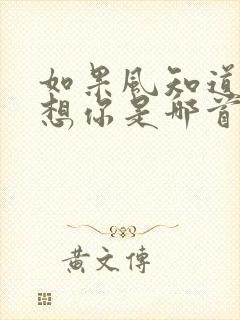 如果風知道
想你是那首
黃文傳